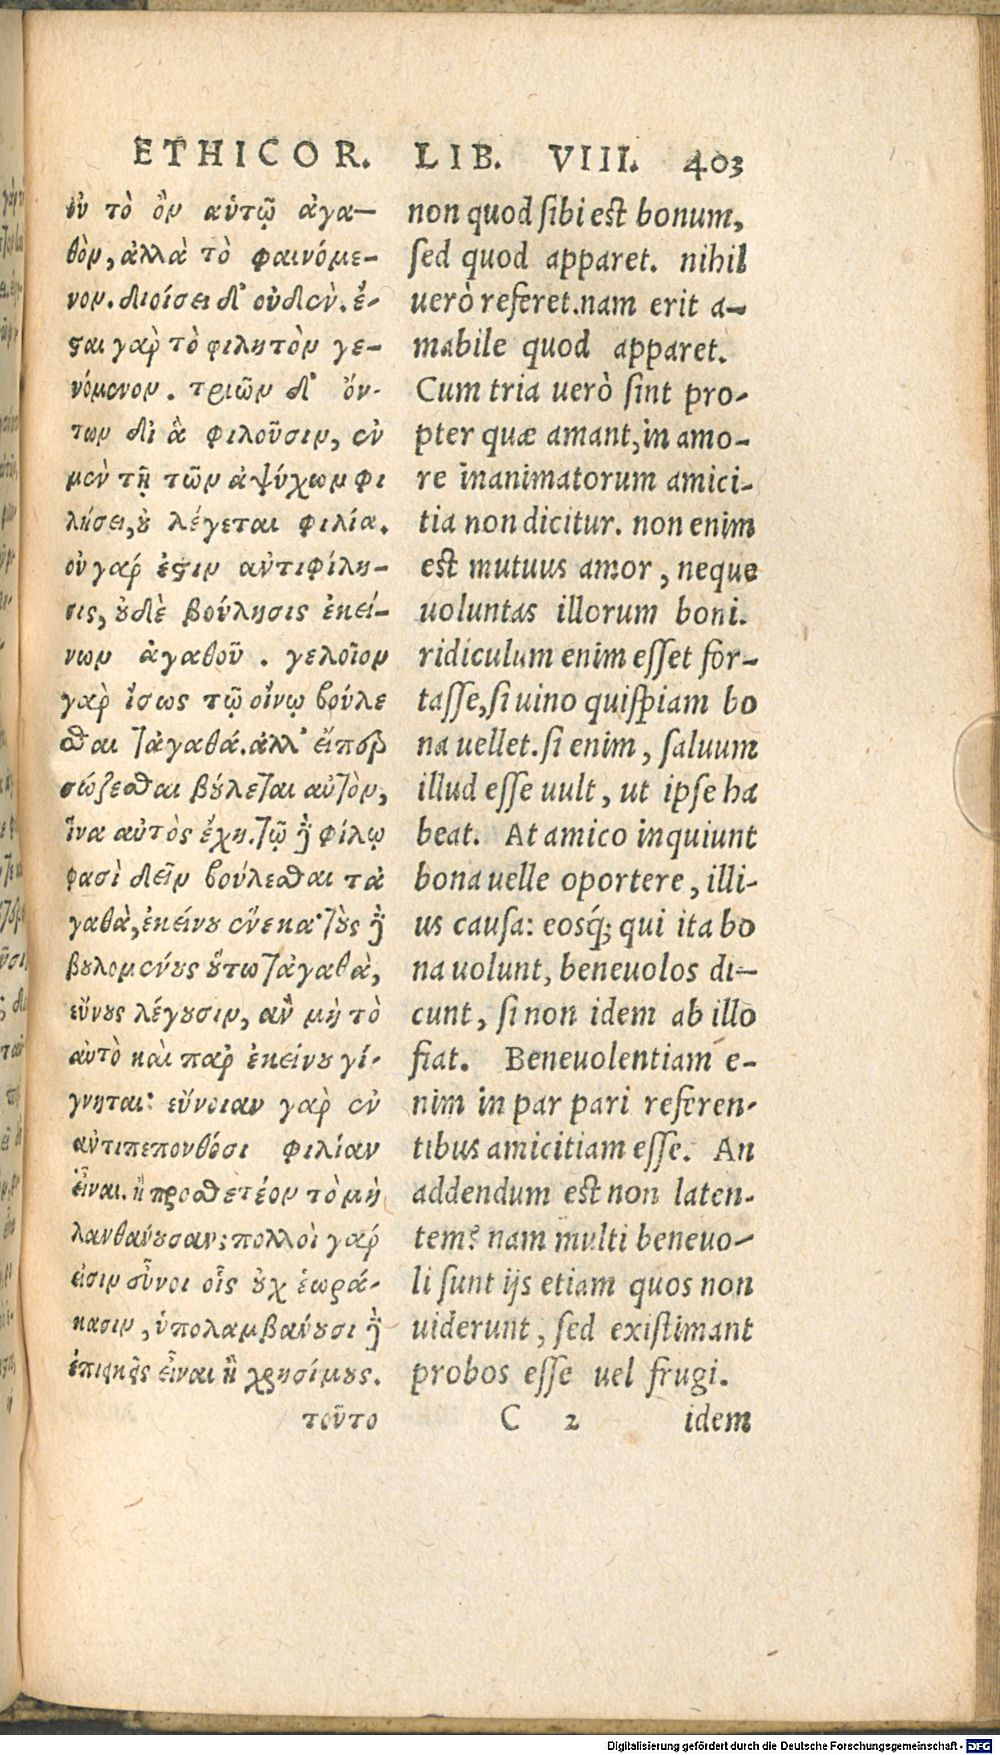 ETHICOR. LIB. VIII. 403
οὐ τὸ ὂν αὑτῷ ἀγα—
θὸν, ἀλλὰ τὸ φαινόμε-
νον. διοίσει δ' οὐδὲν. ἔ-
ϛαι γὰρ τὸ φιλητὸν γε-
νόμενον. τριῶν δ' ὄν-
των δι ἃ φιλοῦσιν, ἐν
μὲν τῇ τῶν ἀψύχωμ φι
λήσει, ȣ λέγεται φιλία.
οὐ γάρ ἐϛιν ἀντιφίλη-
σις, ȣδὲ βούλησις ἐκεί-
νων ἀγαθοῦ. γελοῖον
γὰρ ἴσως τῷ οἴνῳ βούλε
σθαι τἀγαθά. ἀλλ' εἴπερ
σώζεσθαι βȣ́λεται αὐτὸν,
ἵνα αὐτὸς ἔχῃ. τῷ δὲ φίλῳ
φασὶ δεῖν βούλεσθαι τἀ
γαθὰ, ἐκείνȣ ἕνεκα· τȣ̀ς δὲ
βȣλομένȣς ȣ̔́τω τἀγαθὰ,
εὔνȣς λέγȣσιν, ἂν μὴ τὸ
αὐτὸ καὶ παρ ἐκείνȣ γί-
γνηται: εὔνοιαν γὰρ ἐν
ἀντιπεπονθόσι φιλίαν
εἶναι. ἢ προσθετέον τὸ μὴ
λανθανȣ́σαν; πολλοὶ γάρ
εἰσιν εὖνοι οἷς ȣχ ἑωρά-
κασιν, ὑπολαμβανȣ́σι δὲ
ἐπιεικεῖς εἶναι ἢ χρησίμȣς.
τοῦτο
non quod sibi est bonum,
sed quod apparet. nihil
uerò referet. nam erit a-
mabile quod apparet.
Cum tria uerò sint pro-
pter quæ amant, in amo-
re inanimatorum amici-
tia non dicitur. non enim
est mutuus amor, neque
uoluntas illorum boni.
ridiculum enim esset for-
tasse, si uino quispiam bo
na uellet. si enim, saluum
illud esse uult, ut ipse ha
beat. At amico inquiunt
bona uelle oportere, illi-
us causa: eosq́; qui ita bo
na uolunt, beneuolos di-
cunt, si non idem ab illo
fiat. Beneuolentiam e-
nim in par pari referen-
tibus amicitiam esse. An
addendum est non laten-
tem? nam multi beneuo-
li sunt ijs etiam quos non
uiderunt, sed existimant
probos esse uel frugi.
C 2 idem
Digitalisierung gefördert durch die Deutsche Forschungsgemeinschaft - DFG